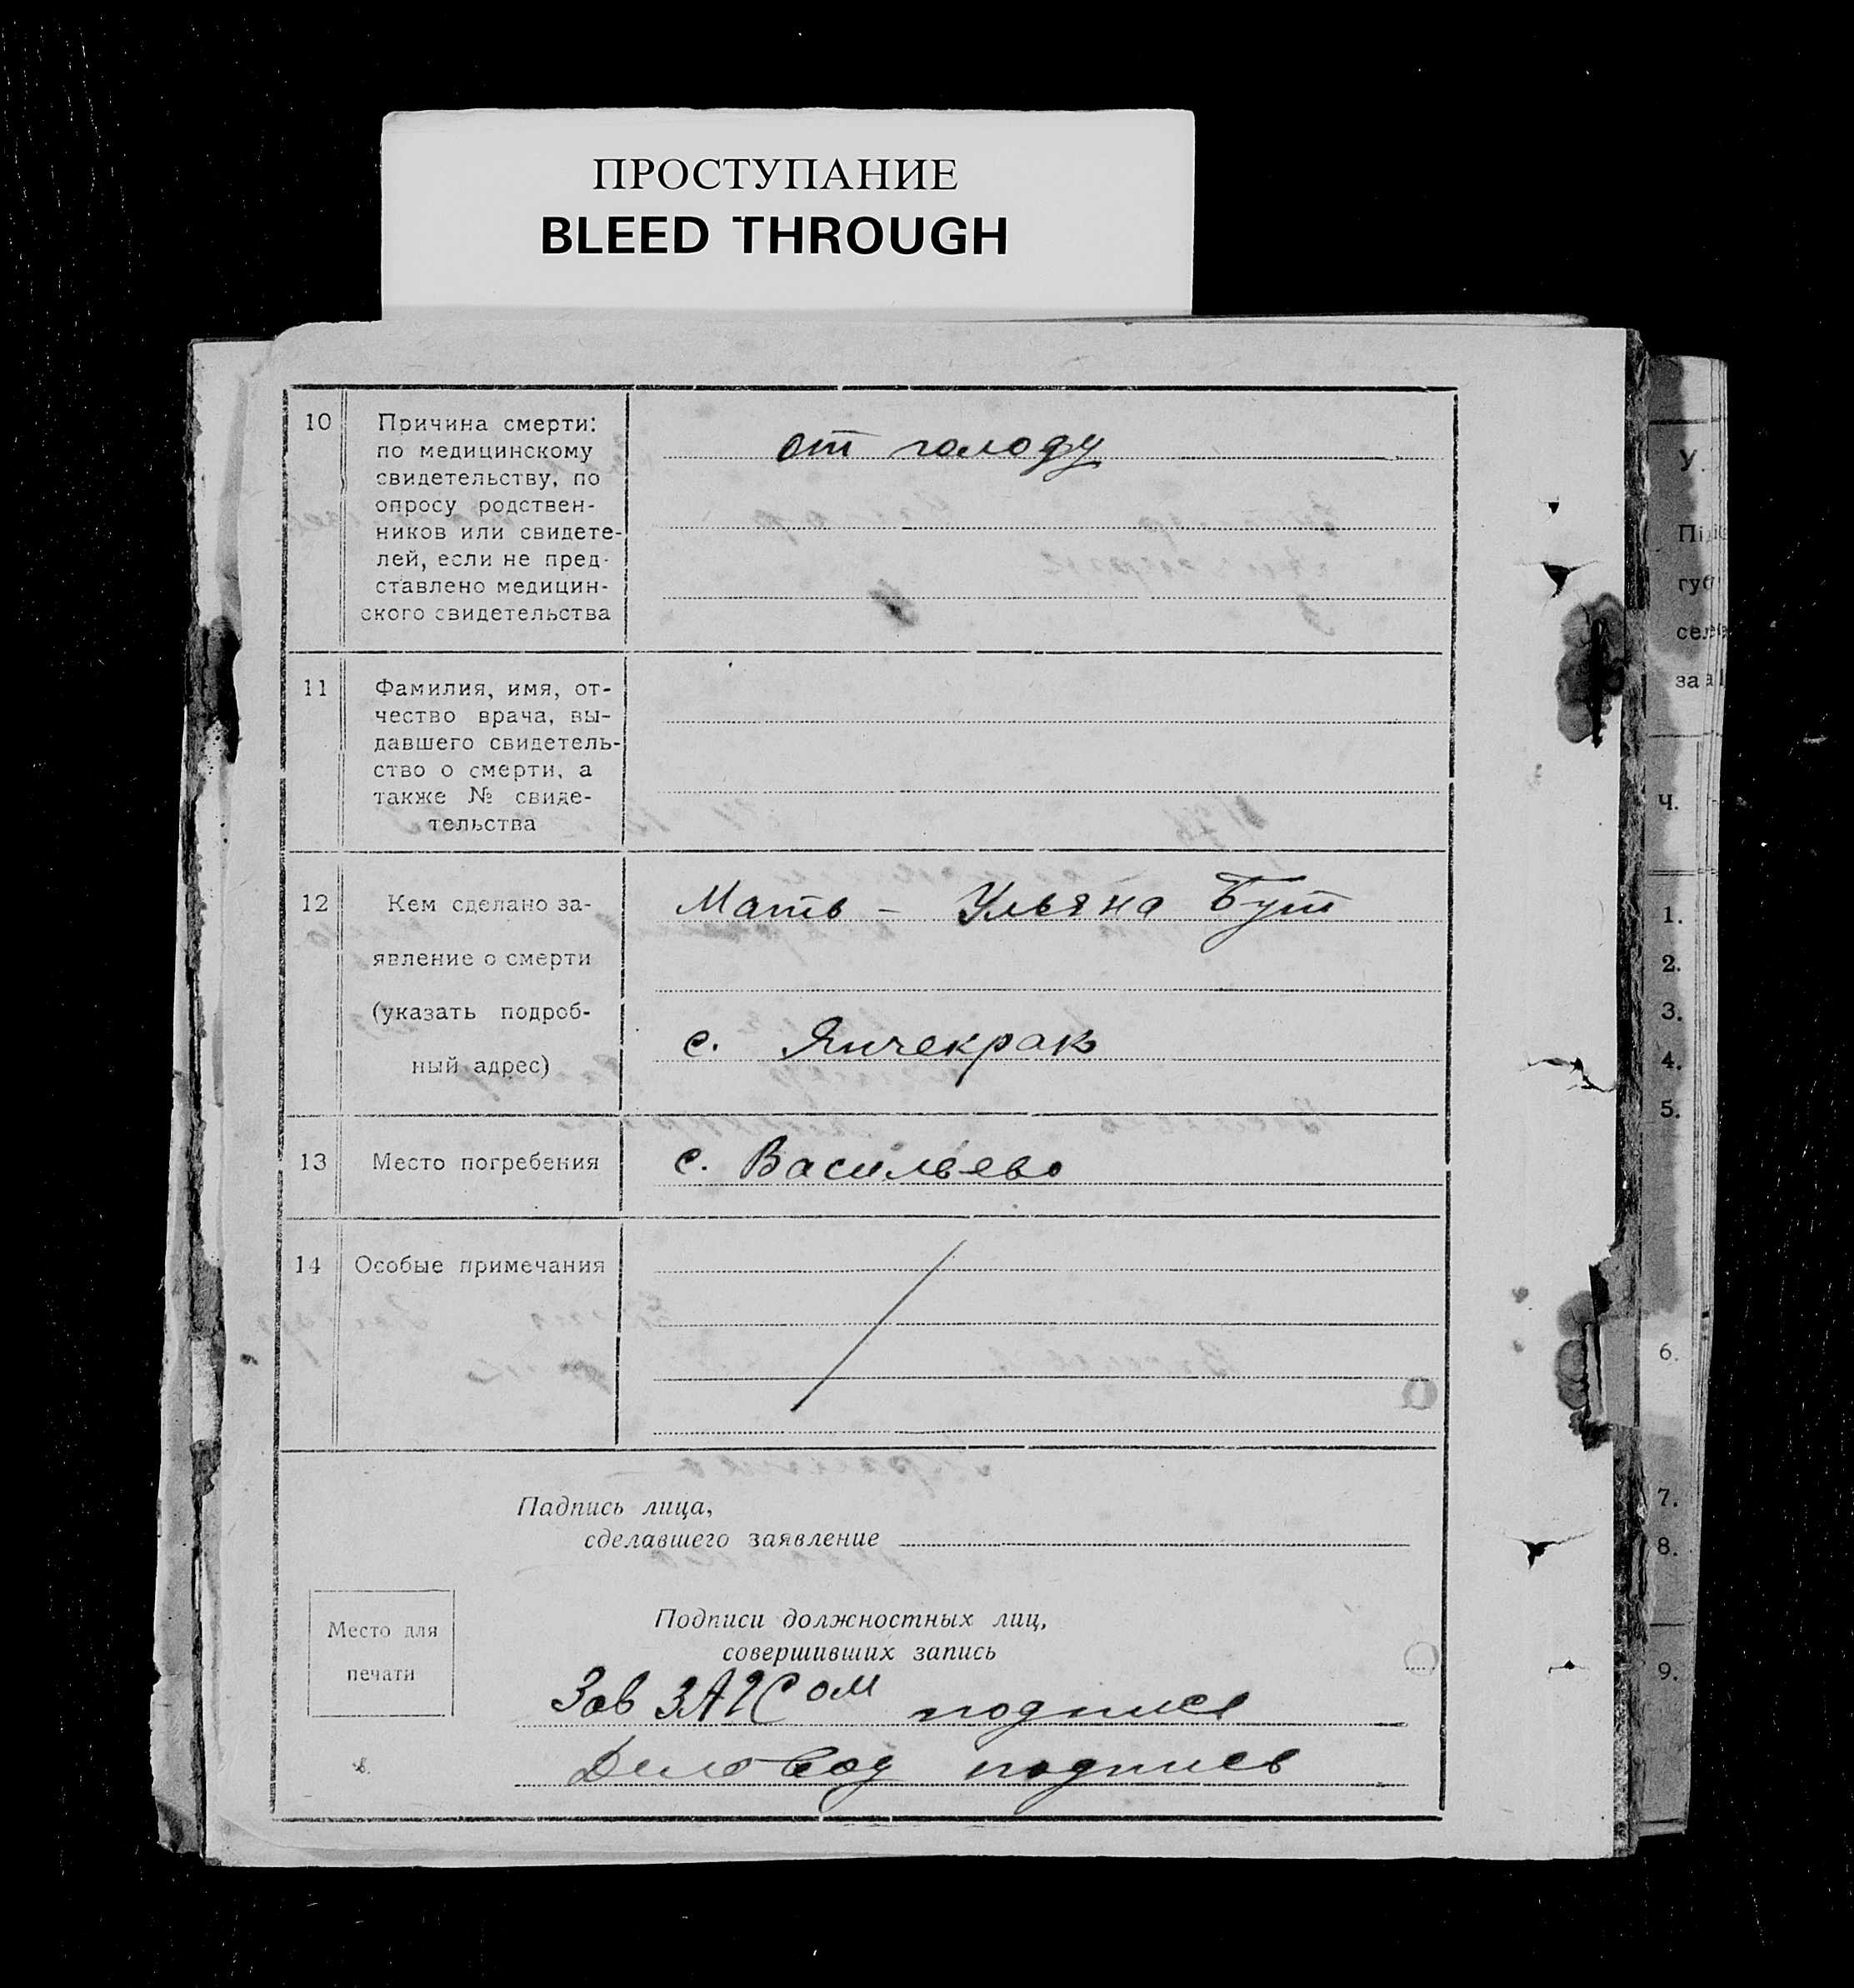 ПРОСТУПАНИЕ
BLEED THROUGH
10
Причина смерти:
по медицинскому
свидетельству, по
опросу родствен-
ников или свидете-
лей, если не пред-
ставлено медицин-
ского свидетельства
от голоду
11
Фамилия, имя, от-
чество врача, вы-
давшего свидетель-
ство о смерти, а
также № свиде-
тельства
12
Кем сделано за-
явление о смерти
(указать подроб-
ный адрес)
Мать - Ульяна Бут
с. Янчекрак
13
Место погребения
с. Васильево
14
Особые примечания
Падпись лица,
сделавшего заявление
Место для
печати
Подписи должностных лиц,
совершивших запись
Зав ЗАГСом подпись
Деловод подпись
У.
Підс
губ
сел
за
Ч.
1.
2.
3.
4.
5.
6.
7.
8.
9.